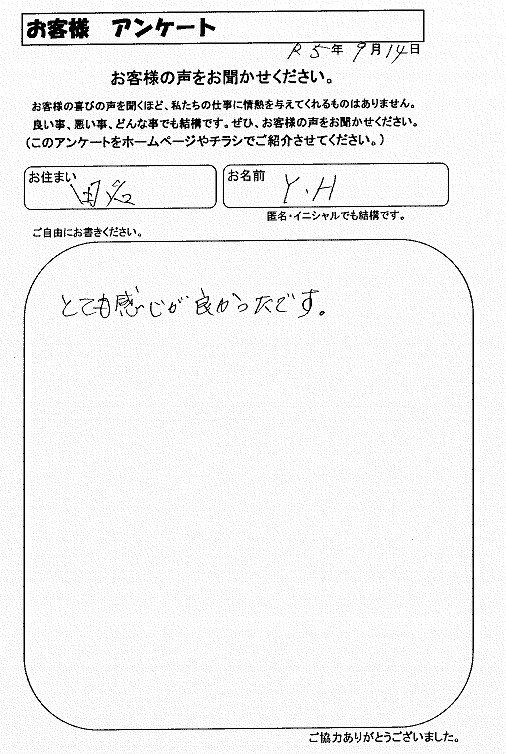 お客様 アンケート
R5年9月14日
お客様の声をお聞かせください。
お客様の喜びの声を聞くほど、私たちの仕事に情熱を与えてくれるものはありません。
良い事、悪い事、どんな事でも結構です。ぜひ、お客様の声をお聞かせください。
(このアンケートをホームページやチラシでご紹介させてください。)
お住まい
お名前 Y.H
匿名・イニシャルでも結構です。
ご自由にお書きください。
とても感じが良かったです。
ご協力ありがとうございました。